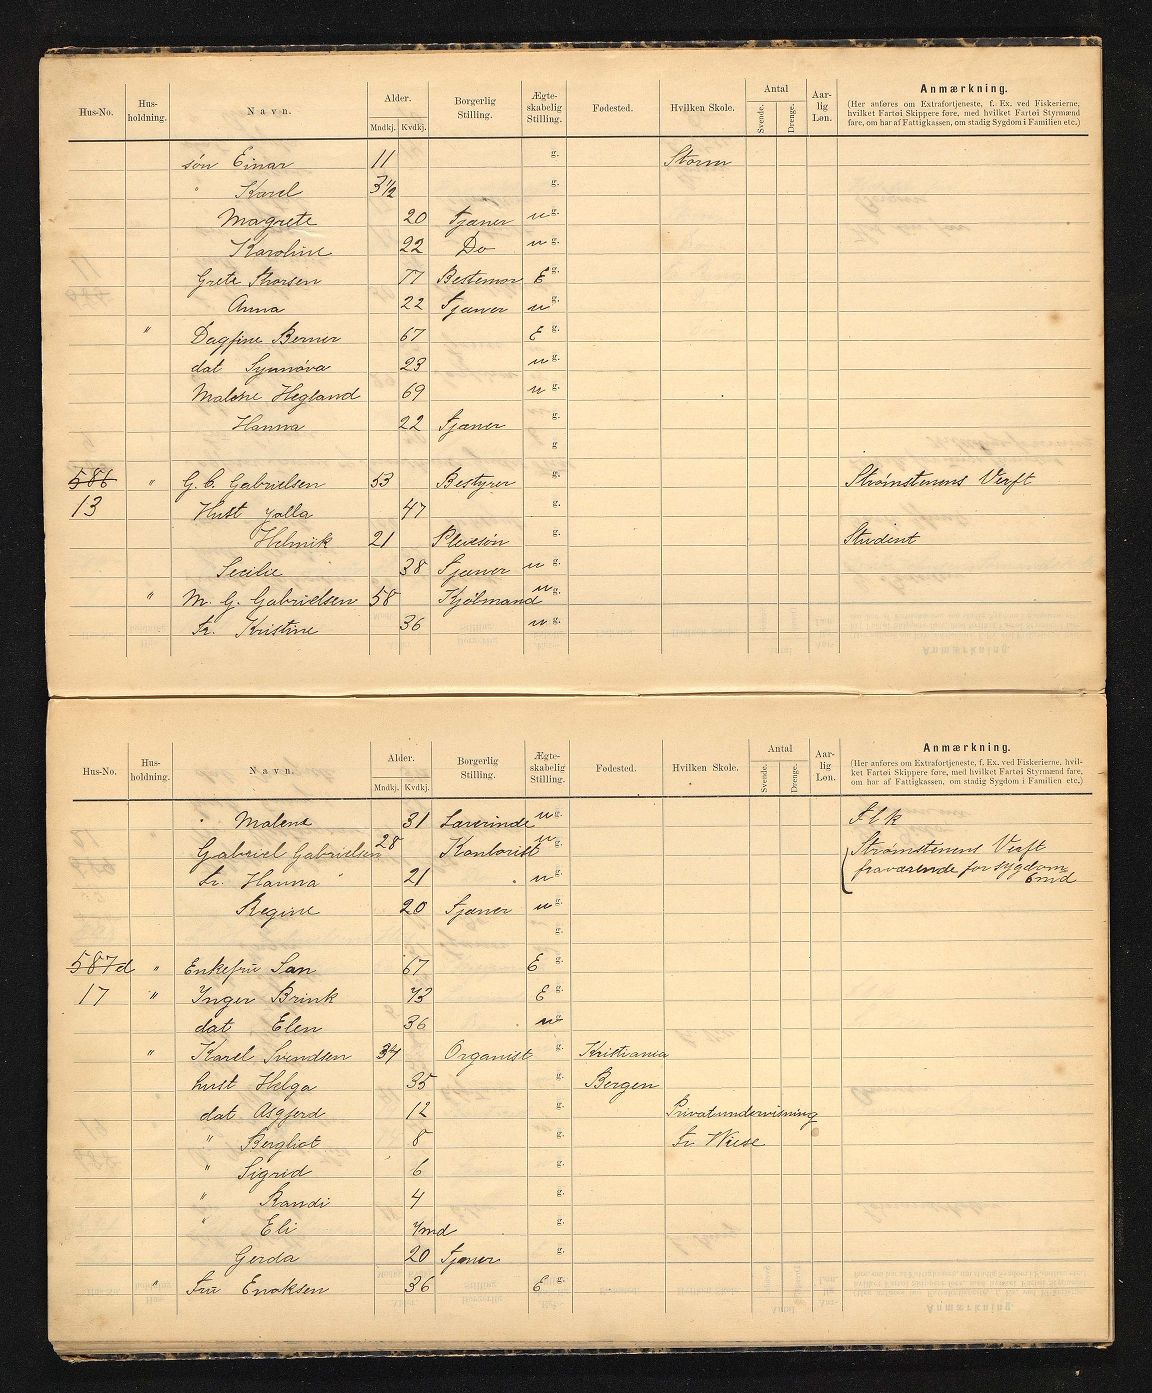 Hus-No. Hus-holdning. Navn. Alder. Mndkj. Kvdkj. Borgerlig Stilling. Ægte-skabelig Stilling. Fødested. Hvilken Skole. Antal Svende. Drenge. Aar-lig Løn. Anmærkning.
(Her anføres om Extrafortjeneste, f. Ex. ved Fiskerierne, hvilket Fartøi Skippere føre, med hvilket Fartøi Styrmænd fare, om har af Fattigkassen, om stadig Sygdom i Familien etc.)
søn Einar 11 g. Storm
" Karel 3 1/2 g.
Magrete 20 Tjæner u g.
Karoline 22 Do u g.
Grete Thorsen 77 Bestemor E g.
Anna 22 Tjæner u g.
" Dagfine Berner 67 E g.
dat Synnøva 23 u g.
Malene Hegland 69 u g.
Hanna 22 Tjæner g.
g.
586 " G. C. Gabrielsen 53 Bestyrer g. Strømstenens Verft
13 Hust Jalla 47 g.
Helmik 21 Pleiesøn g. Student
Secilie 38 Tjæner u g.
" M. G. Gabrielsen 58 Kjøbmand u g.
Fr. Kristine 36 u g.
Hus-No. Hus-holdning. Navn. Alder. Mndkj. Kvdkj. Borgerlig Stilling. Ægte-skabelig Stilling. Fødested. Hvilken Skole. Antal Svende. Drenge. Aar-lig Løn. Anmærkning.
(Her anføres om Extrafortjeneste, f. Ex. ved Fiskerierne, hvilket Fartøi Skippere føre, med hvilket Fartøi Styrmænd fare, om har af Fattigkassen, om stadig Sygdom i Familien etc.)
" Malene 31 Lærerinde u g. Flk
Gabriel Gabrielsen 28 Kontorist u g. Strømstenens Verft
Fr. Hanna " 21 " u g. fraværende for sygdom 6md
Regine 20 Tjæner u g.
g.
587d " Enkefru San 67 E g.
17 " Inger Brink 73 E g.
dat Elen 36 u g.
" Karel Svendsen 34 Organist g. Kristiania
hust Helga 35 g. Bergen
dat Asgjerd 12 g. Privatundervisning
" Bergliot 8 g. Fr Wiese
" Sigrid 6 g.
" Randi 4 g.
" Eli 7md g.
Gerda 20 Tjæner g.
" Fru Enoksen 36 E g.